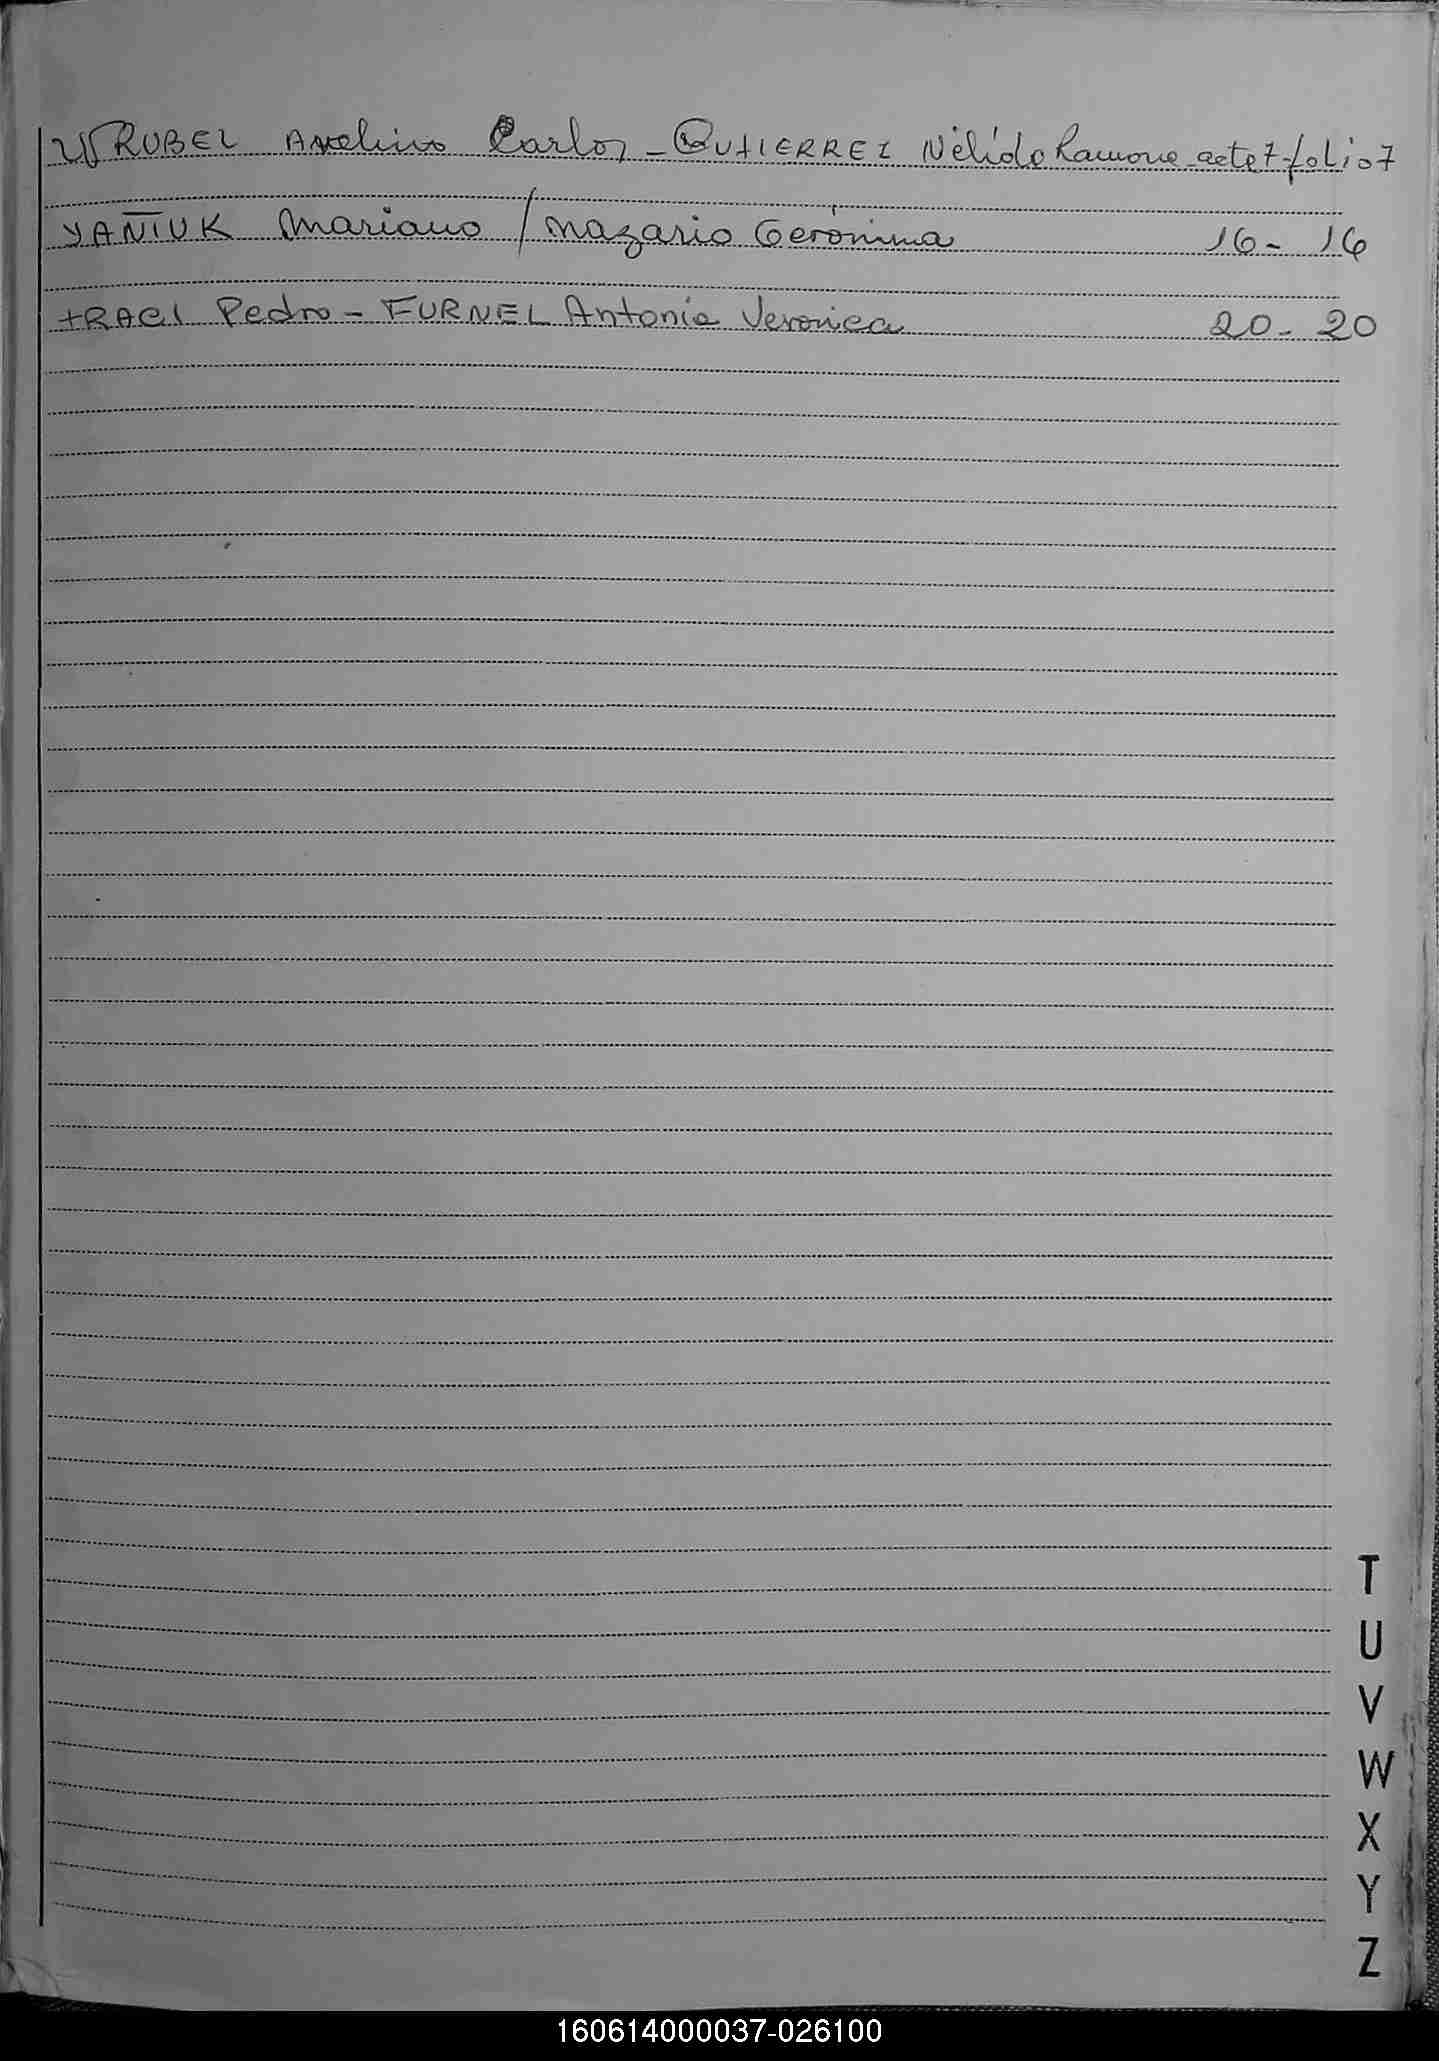 WRUBEL Avelino Carlos - GUTIERREZ Nélida Ramona - acta 7 - folio 7
YAÑUK Mariano / Mazario Gerónima 16 - 16
TRACI Pedro - FURNEL Antonia Veronica 20 - 20
T
U
V
W
X
Y
Z
160614000037-026100